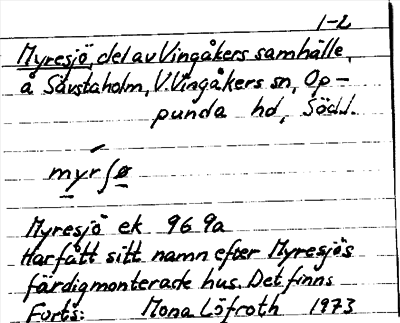 1-2
Myresjö, del av Vingåkers samhälle,
å Sävstaholm, V. Vingåkers sn, Op-
punda hd, Södl.
myrʃø
Myresjö ek 96 9a
Har fått sitt namn efter Myresjös
färdigmonterade hus. Det finns
Forts: Mona Löfroth 1973